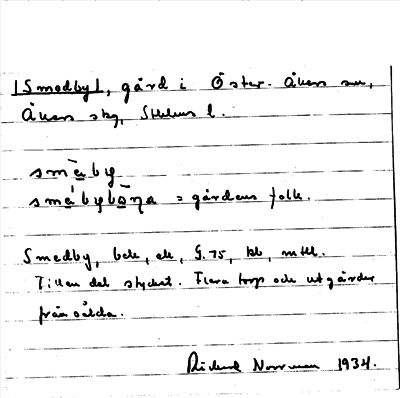 [Smedby], gård i Öster-Åkers sn,
Åkers skg, Sthlms l.
smèby
smébybòna = gårdens folk.
Smedby, beb, ek, G. 75, kb, mtbl.
Till en del styckat. Flera torp och utgårder
från sålda.
Richard Norrman 1934.